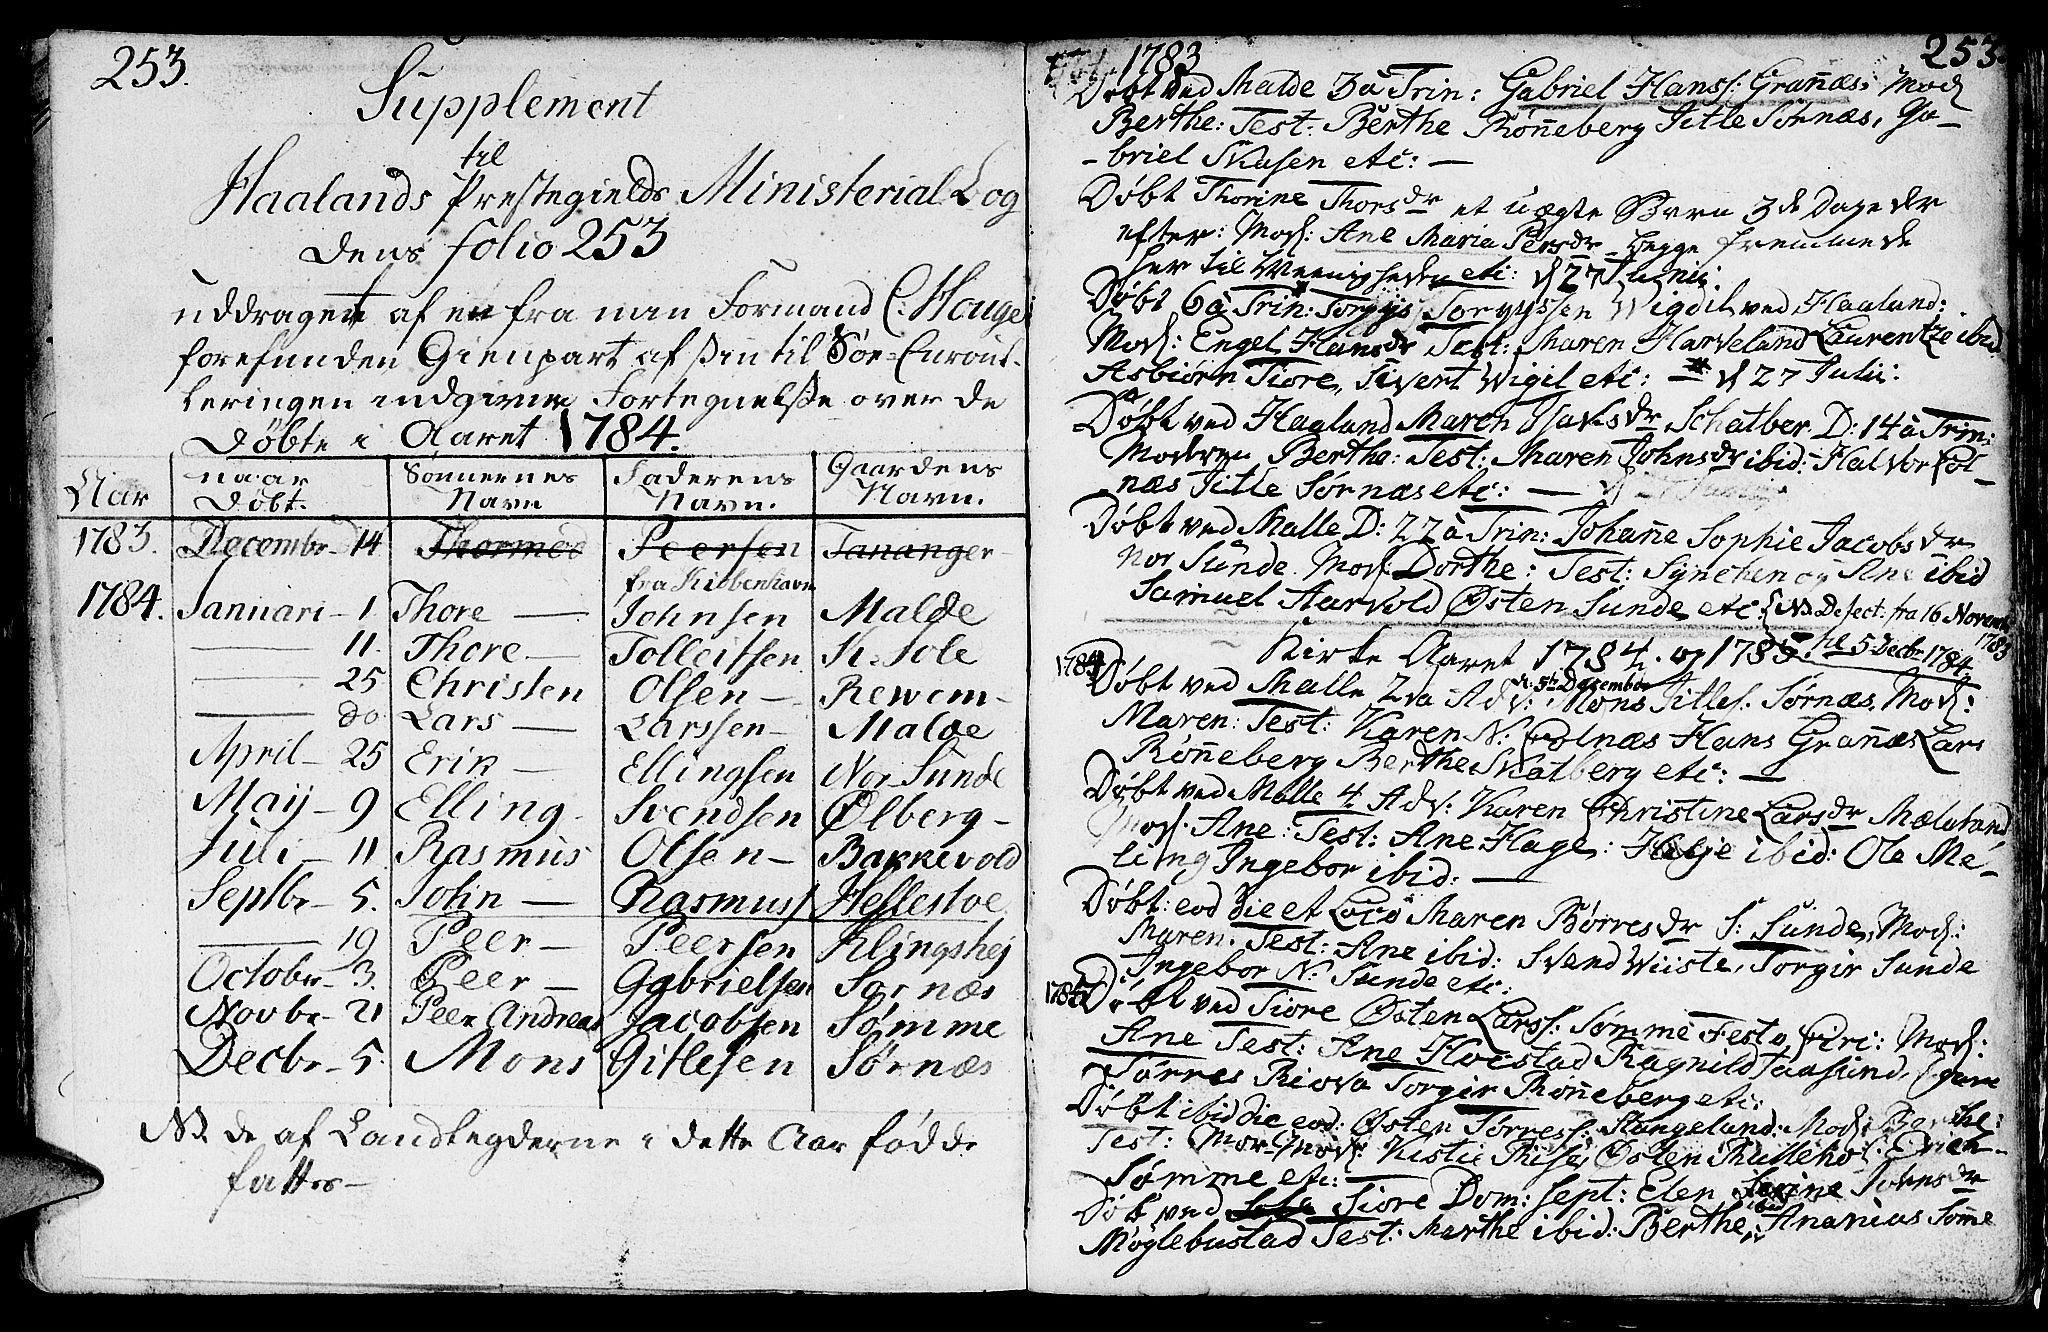 253.
Supplement
til
Haalands Prestegields Ministerial Bog
dens folio 253
uddraget af en fra min Formand C. Houge
forefunden Gienpart af sin til Søe-Enroul-
leringen indgivne Fortegnelsse over de
Døbte i Aaret 1784.
Aar | naar Døbt. | Sønnernes Navn | Faderens Navn. | Gaardens Navn.
1783. Decembr. 14 Thormod Peersen Tananger
fra Kiøbenhavn
1784. Januari - 1 Thore — Johnsen Malde
— 11. Thore — Tolleifsen K. Sole
— 25 Christen Olsen — Rewem-
— do Lars — Larssen — Malde
April - 25 Erik — Ellingsen Nor Sunde
Maij - 9 Elling Svendsen Ølberg-
Juli - 11 Rasmus Olsen - Bakkevold
Septbr - 5. John — Rasmuss Hellestoe
— 19 Peer — Peersen Klingshej
Octobr - 3. Peer — Gabrielsen Sørnæs
Novbr - 21 Peer Andreas Jacobsen Sømme
Decbr - 5 Mons Gitlesen Sørnæs
NB. de af Landlegderne i dette Aar fødde
fattes-
1783
253.
Døbt ved Malde 3 a Trin: Gabriel Hanss: Grannæs: Mod:
Berthe: Test: Berthe Rønneberg Gitle Sørnæs, Ga-
-briel Skasen etc: —
Døbt Thorine Thorsdr et uægte Barn 3de Dage der
efter: Mod: Ane Maria Persdr begge fremmede
her til Meenigheden etc: d 27 Junii:
Døbt 6 a Trin: Torgys Torgyssen Wigdel ved Haaland:
Mod: Engel Hansdr Test: Maren Harveland Laurentze ibid
Asbiørn Tiore, Sivert Wigil etc: — d 27 Julii:
Døbt ved Haaland Maren Isaksdr Schatber. D: 14 a Trin:
Moderen Berthe: Test: Maren Johnsdr ibid: Halvor Fol-
-næs Gitle Sørnæs etc: —
Døbt ved Malle D: 22 a Trin: Johanne Sophie Jacobsdr
Nor Sunde. Mod: Dorthe: Test: Synchen og Ane ibid
Samuel Aarvold Østen Sunde etc: NB Defect. fra 16 Novemb. 1783
til 5 Decbr 1784.
Kirke Aaret 1784. og 1785.
1784 Døbt ved Malle 2 da Adv: Mons Gitles: Sørnæs, Mod:
d. 5te December
Maren: Test: Karen N: Folnæs Hans Grannæs Lars
Rønneberg Berthe Skatberg etc: —
Døbt ved Malle 4. Adv: Karen Christine Larsdr Mæleland
Mod. Ane: Test: Ane Hage, Helje ibid: Ole Me-
ling Ingebor ibid: —
Døbt: eod die et Loco Maren Børresdr S: Sunde, Mod:
Maren. Test: Ane ibid: Svend Wiiste, Torgir Sunde
Ingebor N: Sunde etc:
1785 Døbt ved Tiore Østen Larss: Sømme Festo Circ: Mod:
Ane Test: Ane Hoiestad Ragnild Taasund,
Tørres Risva Torgir Rønneberg etc:
Døbt ibid die eod: Østen Tørress: Stangeland: Mod: Berthe:
Test: Mor-Mod: Kistie Østen Erich
Sømme etc: —
Døb ved Sola Tiore Dom: Sept: Elen Serine Johnsdr
Møglebustad Test: Marthe ibid: Berthe ibid Ananias Sømme